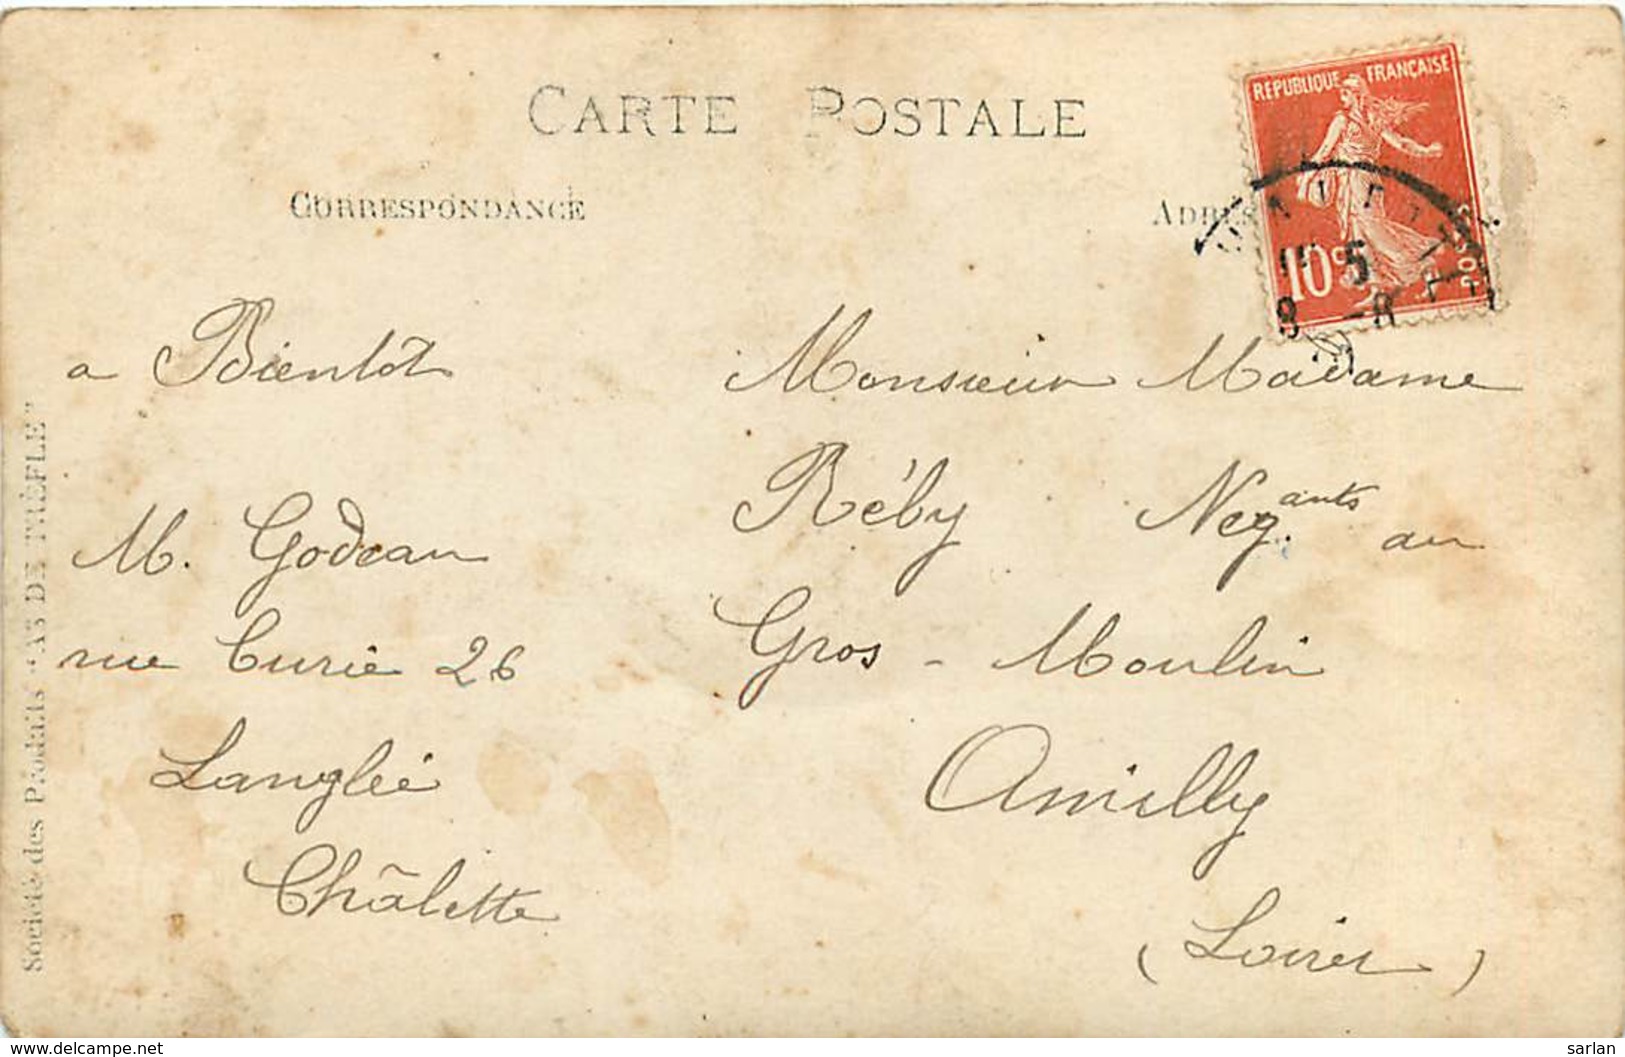 CARTE POSTALE
CORRESPONDANCE
a Bientôt
M. Godeau
rue Curie 26
Langlée
Châlette
Société des Produits "AS DE TRÈFLE"
REPUBLIQUE FRANÇAISE
10c
POSTES
5
8
Monsieur Madame
Réby Negants au
Gros - Moulin
Amilly
(Loiret)
www.delcampe.net
sarlan